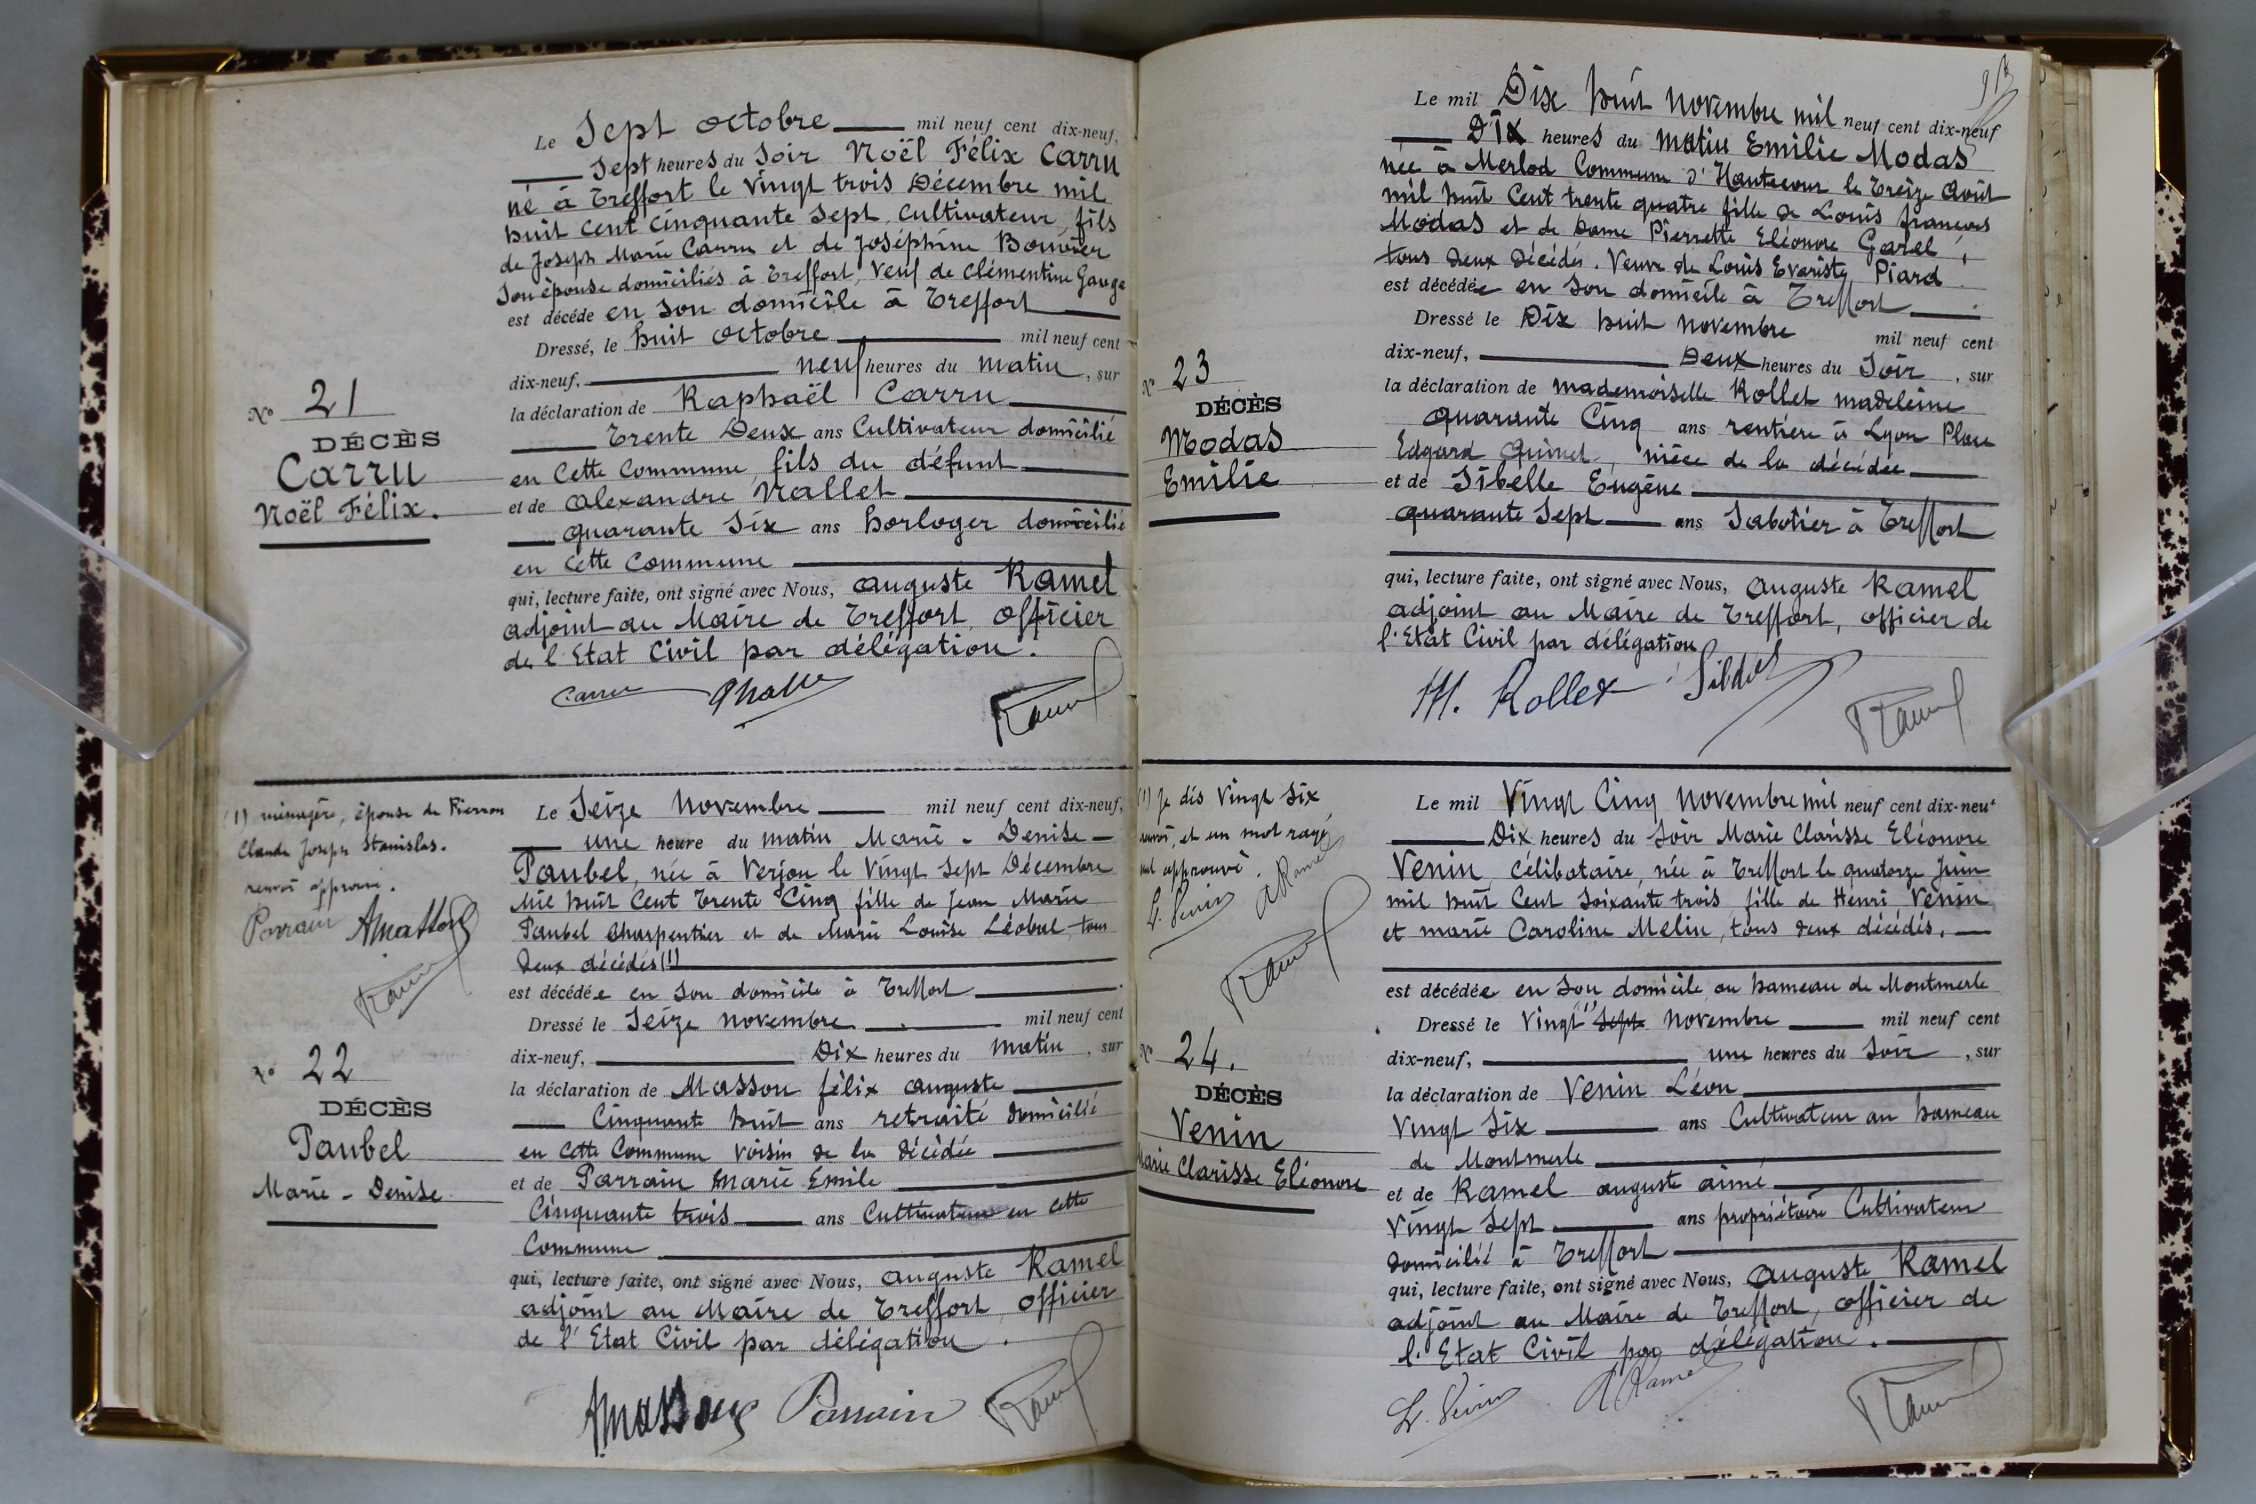 Le Sept octobre mil neuf cent dix-neuf,
Sept heures du Soir Noël Félix Carru
né à Treffort le vingt trois Décembre mil
huit cent cinquante sept, cultivateur, fils
de Joseph Marie Carru et de Joséphine Bouvier
son épouse domiciliés à Treffort, veuf de Clémentine Gauge
est décédé en son domicile à Treffort
Dressé, le huit octobre mil neuf cent
dix-neuf, neuf heures du matin, sur
la déclaration de Raphaël Carru
Trente Deux ans Cultivateur domicilié
en cette commune, fils du défunt
et de Alexandre Nallet
quarante Six ans horloger domicilié
en cette commune
qui, lecture faite, ont signé avec Nous, Auguste Ramel
adjoint au Maire de Treffort, officier
de l'Etat Civil par délégation.
No 21
DÉCÈS
Carru
Noël Félix.
Carru Ramel
(1) ménagère, épouse de Pierron
Claude Joseph Stanislas.
renvoi approuvé.
Parrain AMasson
Ramel
No 22
DÉCÈS
Paubel
Marie - Denise
Le Seize Novembre mil neuf cent dix-neuf,
une heure du matin Marie - Denise -
Paubel, née à Verjon le Vingt Sept Décembre
mil huit Cent Trente Cinq fille de Jean Marie
Paubel Charpentier et de Marie Louise Léobal, tous
deux décédés (1)
est décédée en son domicile à Treffort
Dressé le Seize novembre mil neuf cent
dix-neuf, Dix heures du matin, sur
la déclaration de Masson félix auguste
Cinquante huit ans retraité domicilié
en cette Commune voisin de la décédée
et de Parrain Marie Emile
Cinquante trois ans Cultivateur en cette
Commune
qui, lecture faite, ont signé avec Nous, Auguste Ramel
adjoint au Maire de Treffort, officier
de l'Etat Civil par délégation.
AMasson Parrain Ramel
Le mil Dix huit Novembre mil neuf cent dix-neuf
Dix heures du matin Emilie Modas
née à Merlod Commune d'Hautecour le Treize Août
mil huit Cent trente quatre fille de Louis françois
Modas et de Dame Pierrette Eléonore Garel,
tous deux décédés. Veuve de Louis Evariste Piard
est décédée en son domicile à Treffort.
Dressé le Dix huit novembre mil neuf cent
dix-neuf, Deux heures du Soir, sur
la déclaration de mademoiselle Rollet madeleine
quarante Cinq ans rentière à Lyon Place
Edgard Quinet, nièce de la décédée
et de Sibelle Eugène
quarante Sept ans Sabotier à Treffort
qui, lecture faite, ont signé avec Nous, Auguste Ramel
adjoint au Maire de Treffort, officier de
l'Etat Civil par délégation
No 23
DÉCÈS
Modas
Emilie
M. Rollet Sibelle Ramel
(1) je dis Vingt Six
renvoi, et un mot rayé
nul approuvé.
L. Venin A Ramel
Ramel
No 24.
DÉCÈS
Venin
Marie Clarisse Eléonore
Le mil Vingt Cinq Novembre mil neuf cent dix-neuf
Dix heures du Soir Marie Clarisse Eléonore
Venin, Célibataire, née à Treffort le quatorze Juin
mil huit Cent Soixante trois fille de Henri Venin
et Marie Caroline Melin, tous deux décédés.
est décédée en son domicile au hameau de Montmerle
Dressé le Vingt (1) Sept novembre mil neuf cent
dix-neuf, une heures du Soir, sur
la déclaration de Venin Léon
Vingt Six ans Cultivateur au hameau
de Montmerle
et de Ramel auguste aimé
Vingt Sept ans propriétaire Cultivateur
domicilié à Treffort
qui, lecture faite, ont signé avec Nous, Auguste Ramel
adjoint au Maire de Treffort, officier de
l'Etat Civil par délégation.
L. Venin A Ramel Ramel